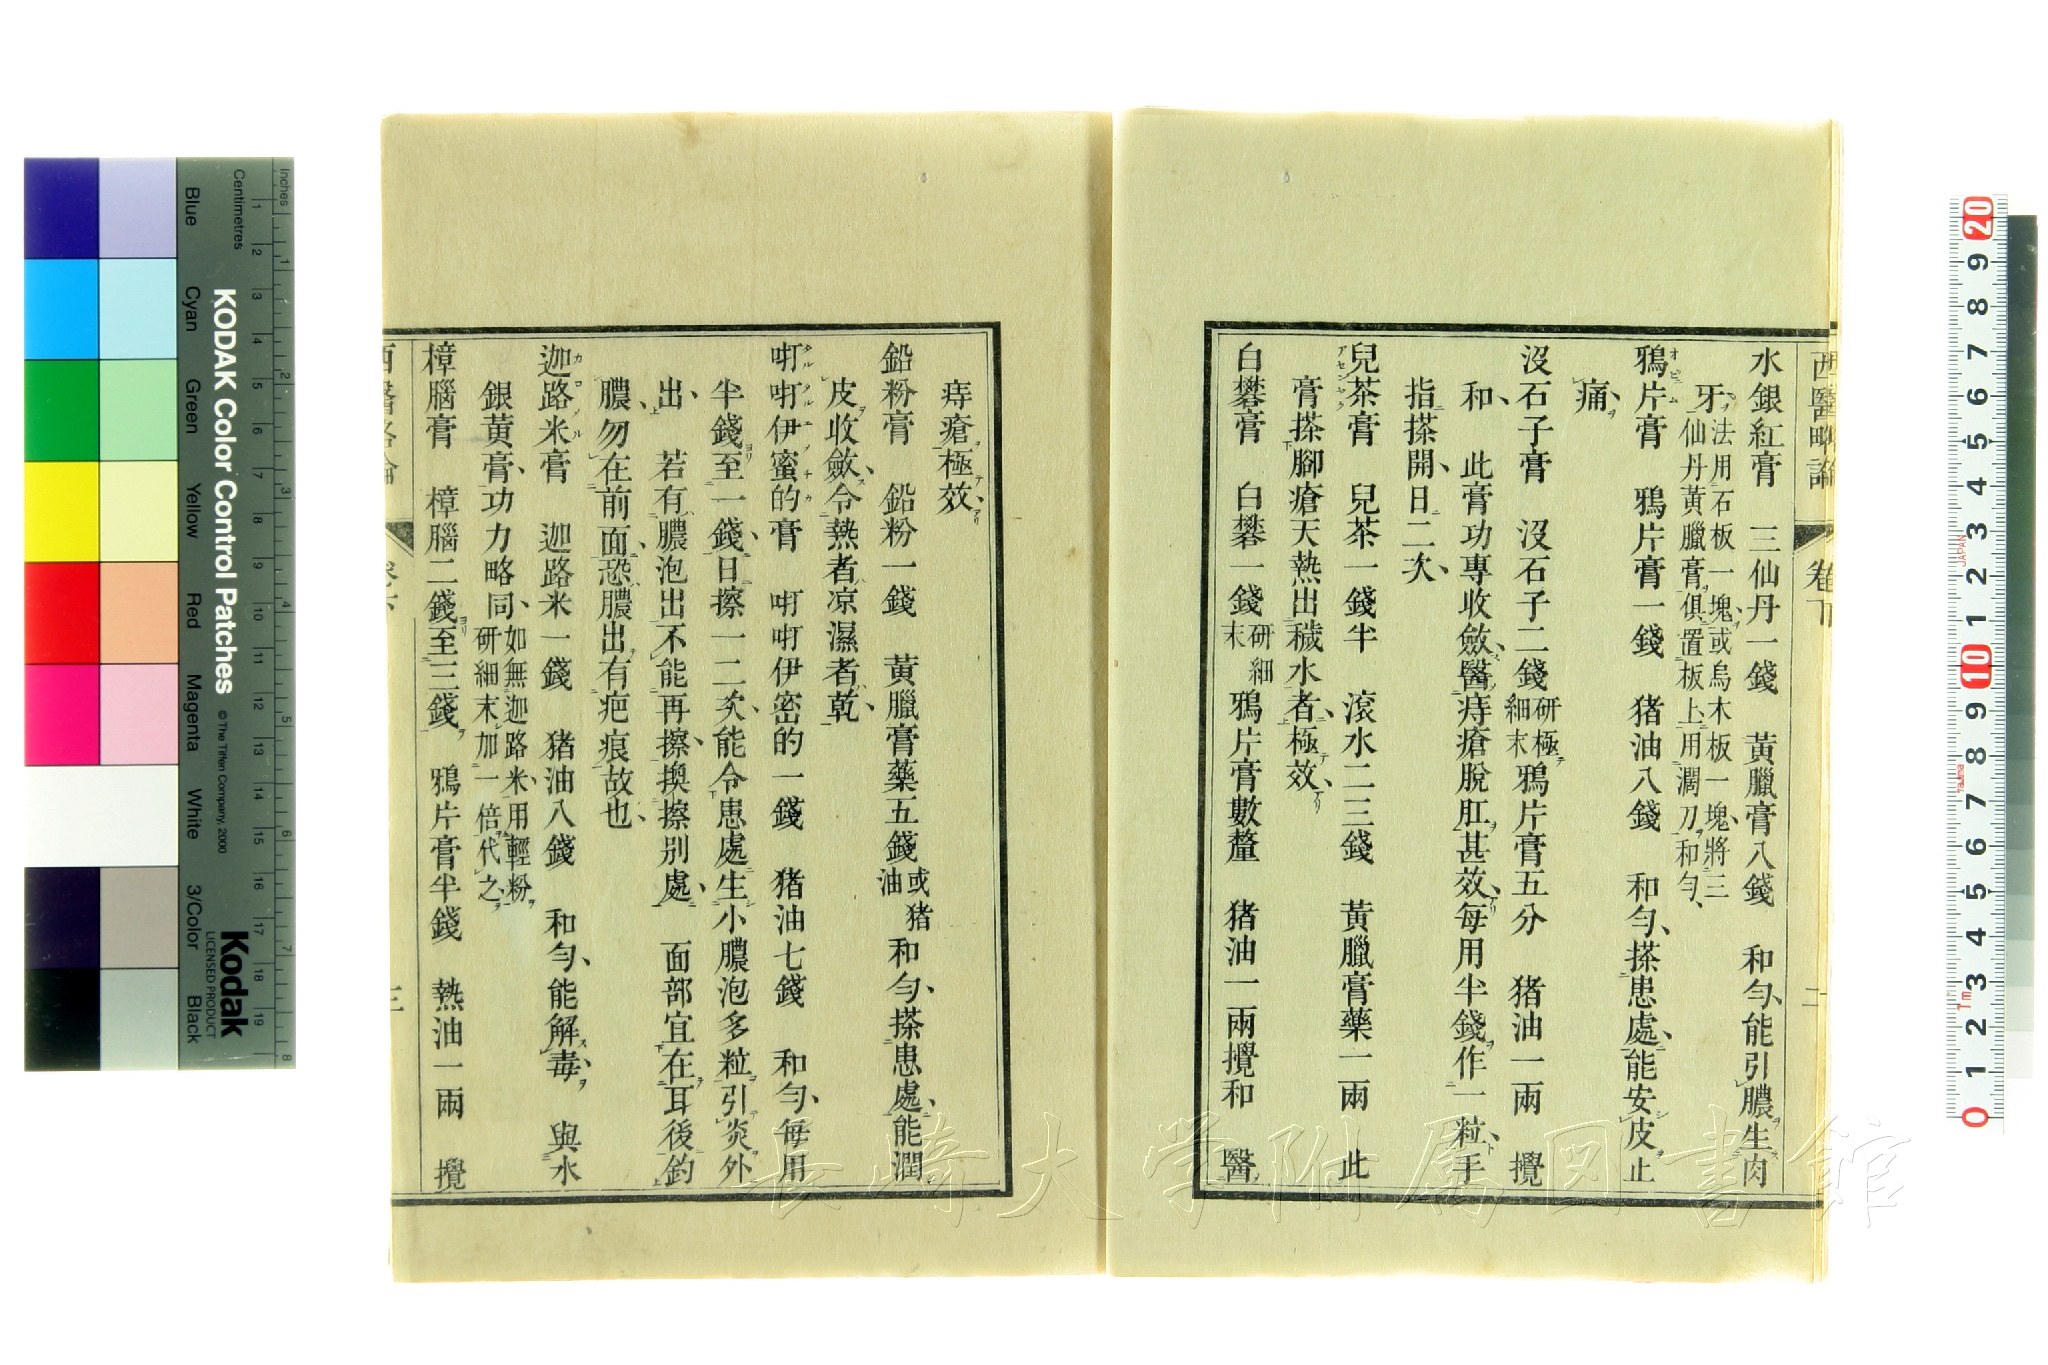 西醫略論　卷下　二
水銀紅膏　三仙丹一錢　黃臘膏八錢　和勻、能引膿生肉
牙、法用石板一塊、或烏木板一塊、將三
仙丹黃臘膏、俱置板上、用濶刀和勻、
鴉片膏　鴉片膏一錢　猪油八錢　和勻、搽患處、能安皮止
痛、
沒石子膏　沒石子二錢研極細末鴉片膏五分　猪油一兩　攪
和、　此膏功專收斂、醫痔瘡脫肛甚效、每用半錢作一粒、手
指搽開、日二次、
兒茶膏　兒茶一錢半　滾水二三錢　黃臘膏藥一兩　此
膏搽腳瘡天熱出穢水者、極效、
白礬膏　白礬一錢研細末　鴉片膏數釐　猪油一兩攪和　醫
痔瘡極效、
鉛粉膏　鉛粉一錢　黃臘膏藥五錢或猪油　和勻、搽患處、能潤
皮收斂、令熱者凉濕者乾、
𠵽𠵽伊蜜的膏　𠵽𠵽伊密的一錢　猪油七錢　和勻、每用
半錢至一錢、日擦一二次、能令患處生小膿泡多粒引炎外
出、　若有膿泡出不能再擦、換擦别處、　面部宜在耳後釣
膿、勿在前面、恐膿出有疤痕故也、
迦路米膏　迦路米一錢　猪油八錢　和勻、能解毒、　與水
銀黃膏、功力略同、如無迦路米、用輕粉
研細末、加一倍代之、
樟腦膏　樟腦二錢至三錢　鴉片膏半錢　熱油一兩　攪
西醫略論　卷下　三
長崎大学附属図書館
Inches
Centimetres
KODAK Color Control Patches
© The Tiffen Company, 2000
Kodak
LICENSED PRODUCT
Blue
Cyan
Green
Yellow
Red
Magenta
White
3/Color
Black
1 2 3 4 5 6 7 8 9 10 11 12 13 14 15 16 17 18 19
1 2 3 4 5 6 7 8
20 9 8 7 6 5 4 3 2 1 10 9 8 7 6 5 4 3 2 1 0
JAPAN